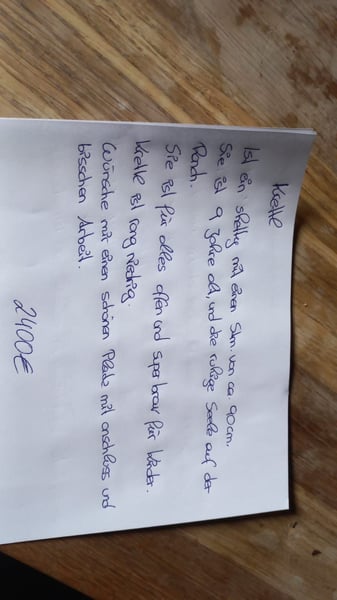 Krelle
Ist ein shetty mit einen Stm. von ca. 90cm.
Sie ist 9 Jahre alt, und die ruhige Seele auf der
Ranch.
Sie ist für alles offen und super brav für Kinder.
Krelle ist rang niedrig.
Wünsche mir einen schönen Platz mit anschluss und
bisschen Arbeit.
2400€